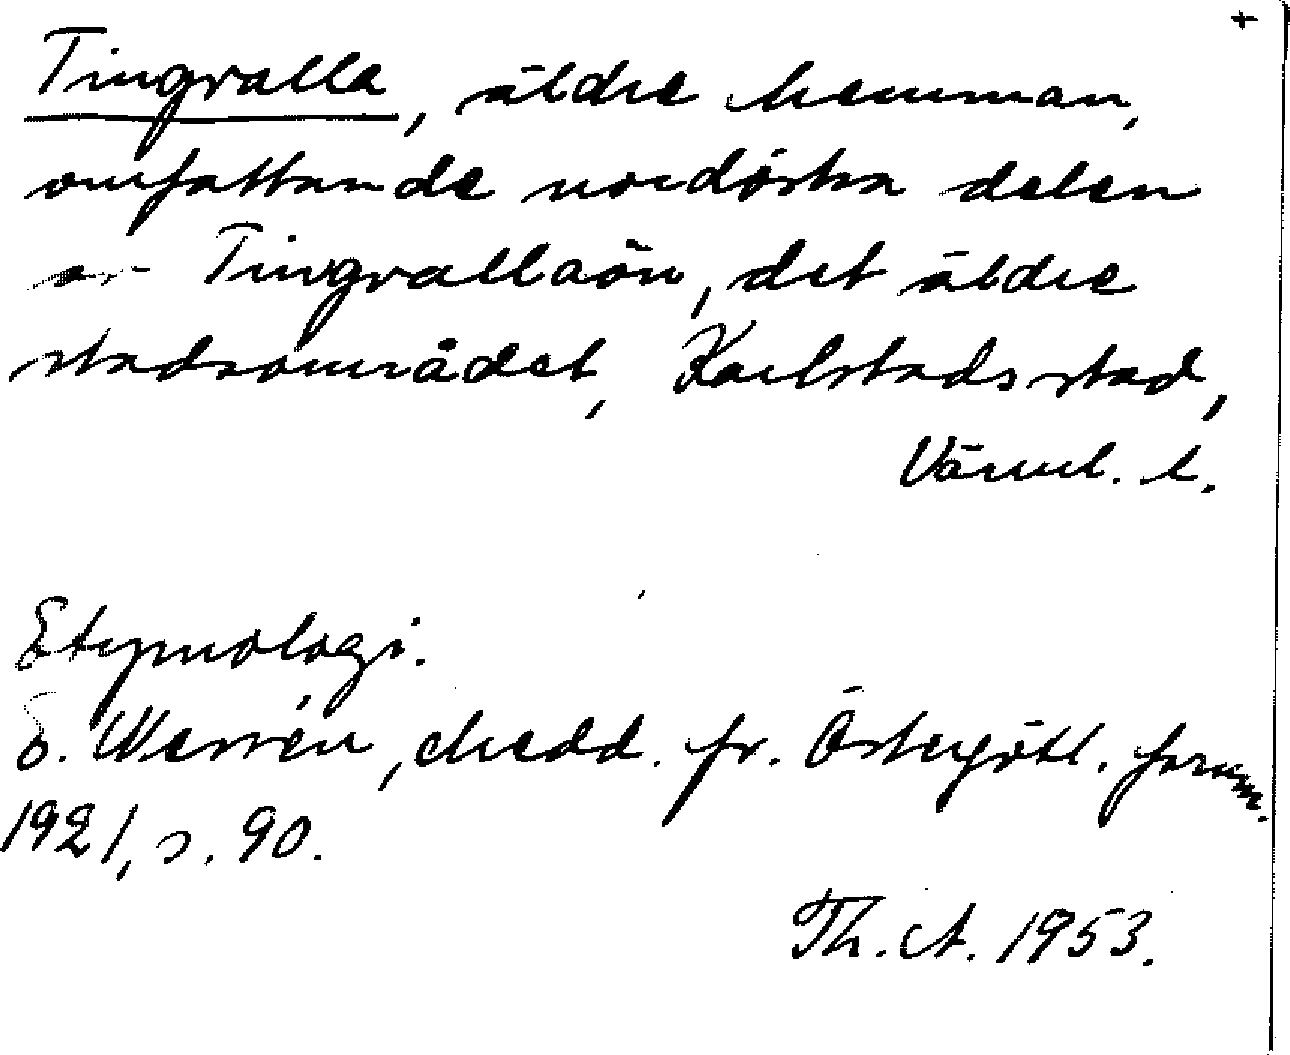 +
Tingvalla, äldre hemman,
omfattande nordöstra delen
av Tingvallaön, det äldre
stadsområdet, Karlstads stad,
Värml. l.
Etymologi.
E. Wessén, Medd. fr. Östergötl. fornm.
1921, s. 90.
Th. A. 1953.